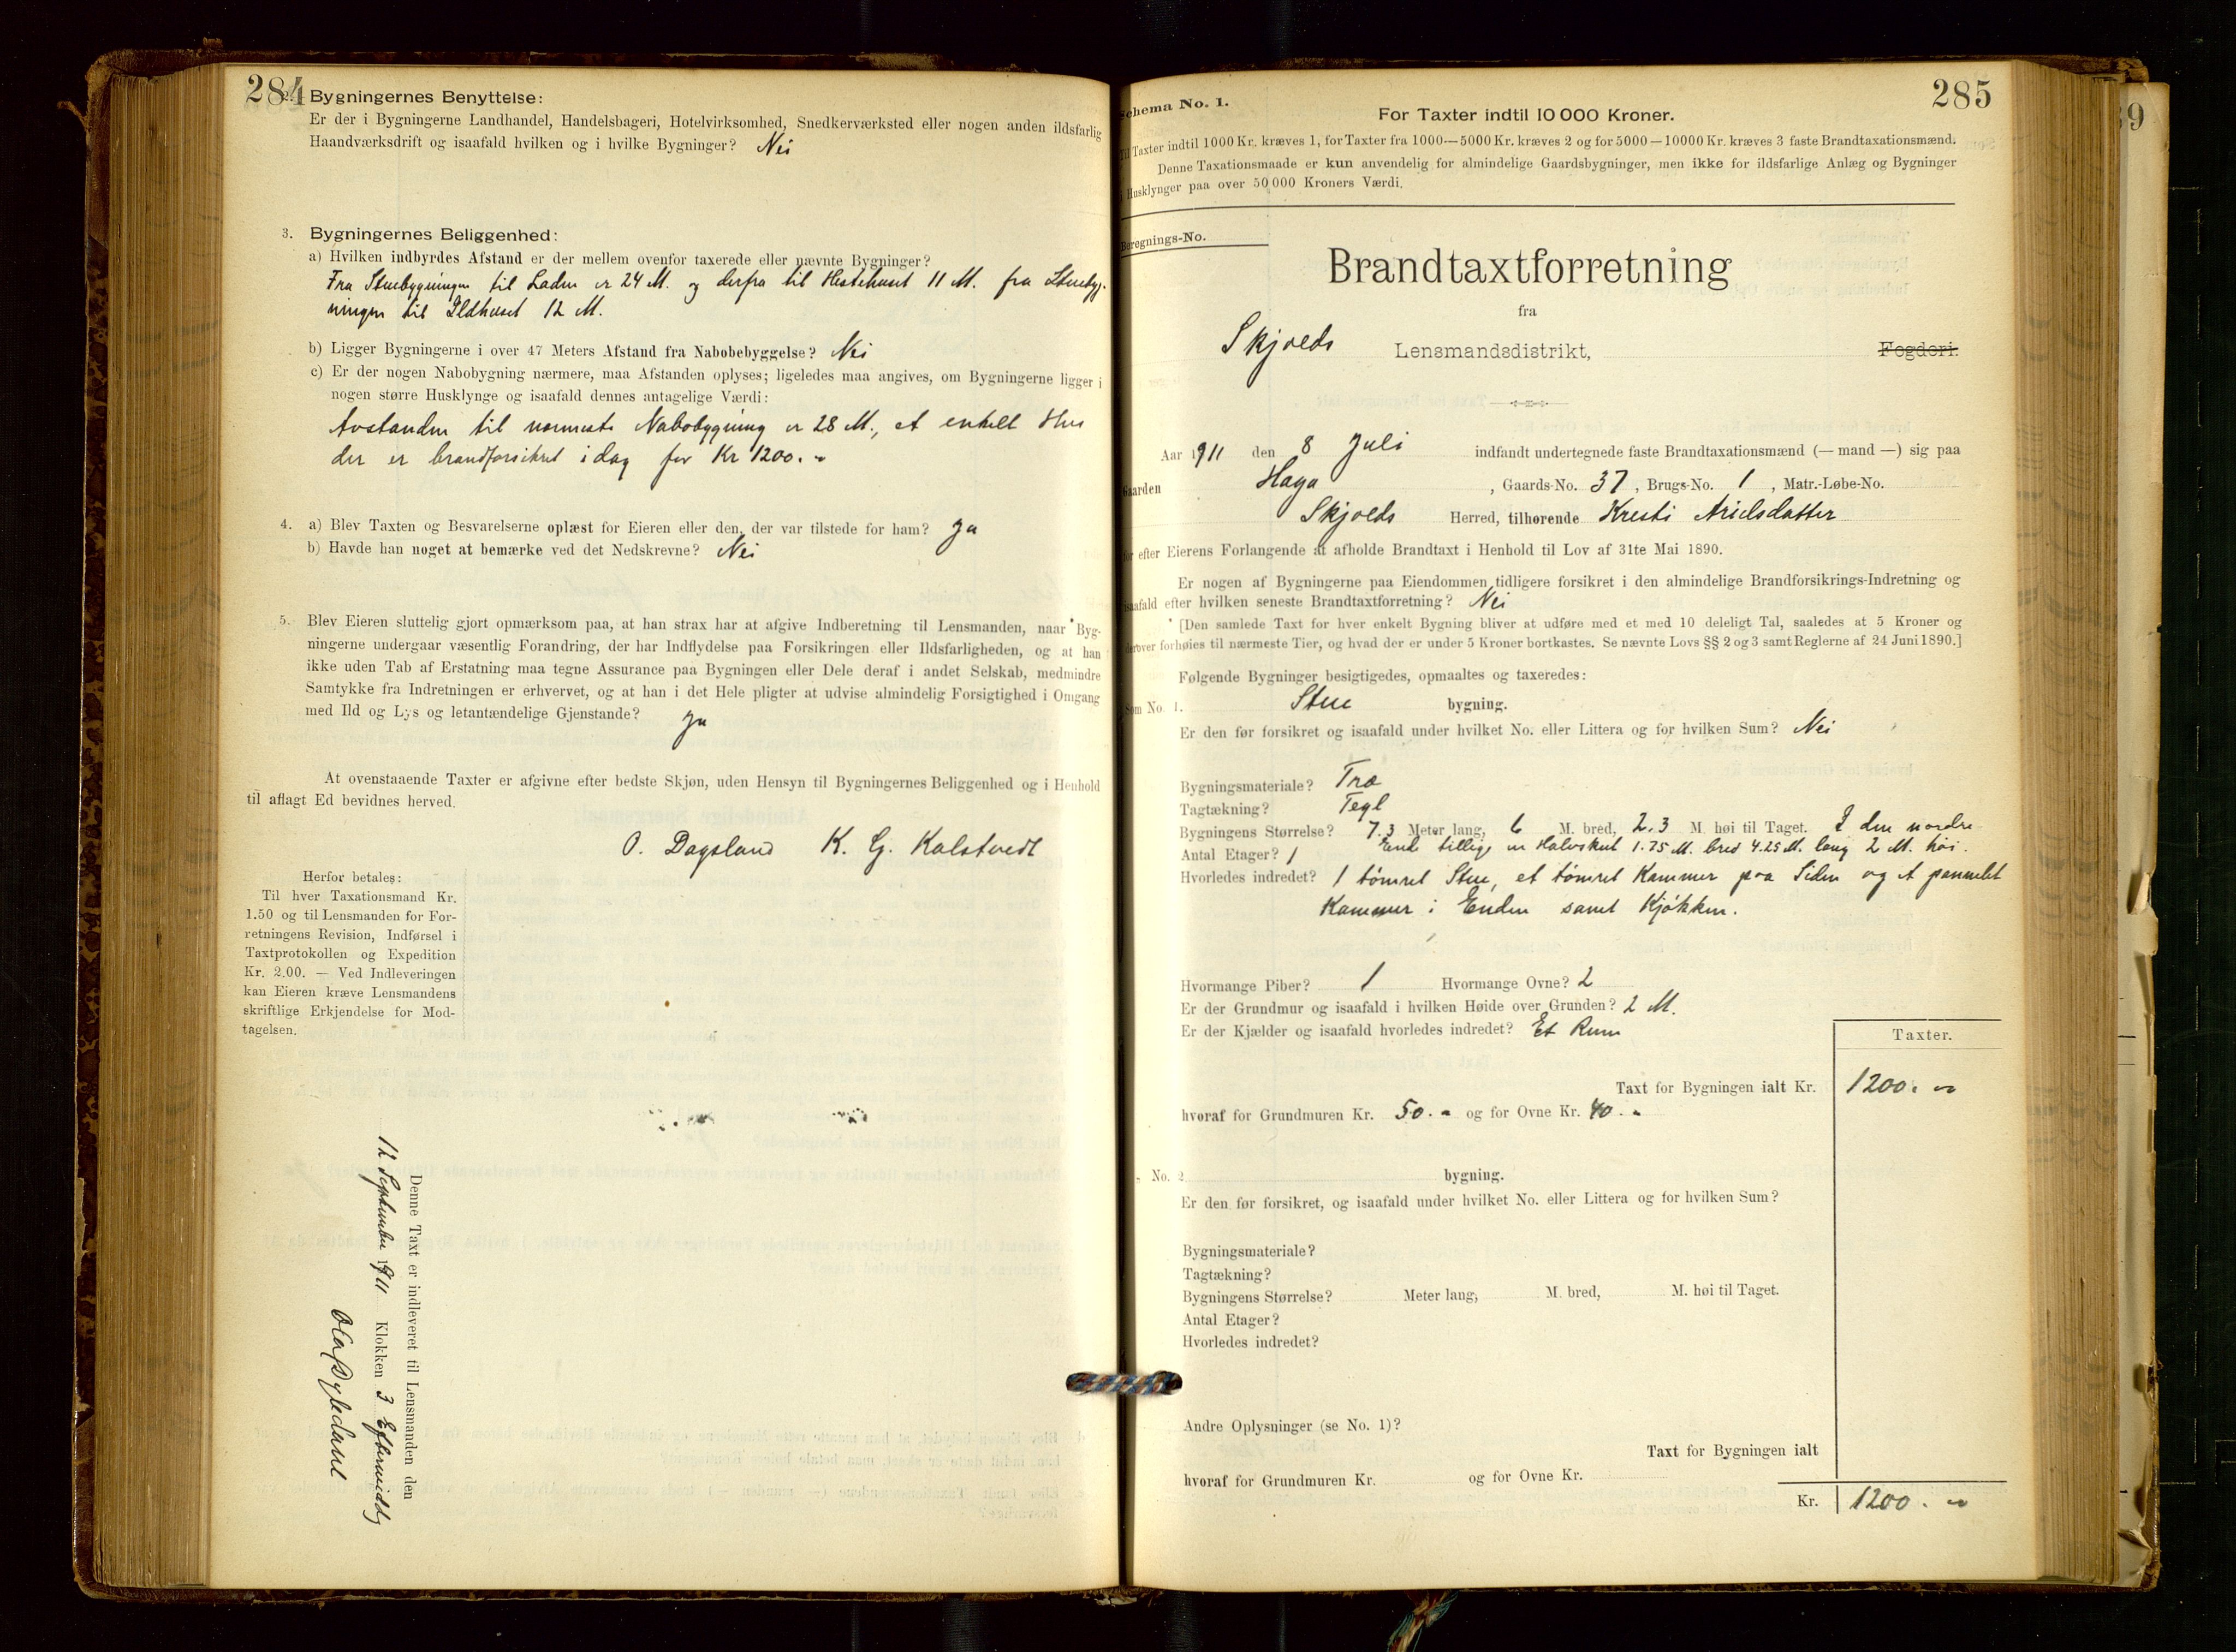 284
2. Bygningernes Benyttelse:
Er der i Bygningerne Landhandel, Handelsbageri, Hotelvirksomhed, Snedkerværksted eller nogen anden ildsfarlig
Haandværksdrift og isaafald hvilken og i hvilke Bygninger? Nei
3. Bygningernes Beliggenhed:
a) Hvilken indbyrdes Afstand er der mellem ovenfor taxerede eller nævnte Bygninger?
Fra Stuebygningen til Laden er 24 M. og derfra til Hestehuset 11 M. fra Stuebyg-
ningen til Ildhuset 12 M.
b) Ligger Bygningerne i over 47 Meters Afstand fra Nabobebyggelse? Nei
c) Er der nogen Nabobygning nærmere, maa Afstanden oplyses; ligeledes maa angives, om Bygningerne ligger i
nogen større Husklynge og isaafald dennes antagelige Værdi:
Avstanden til nærmeste Nabobygning er 28 M., et enkelt Hus
der er brandforsikret idag for Kr 1200. -
4. a) Blev Taxten og Besvarelserne oplæst for Eieren eller den, der var tilstede for ham? Ja
b) Havde han noget at bemærke ved det Nedskrevne? Nei
5. Blev Eieren sluttelig gjort opmærksom paa, at han strax har at afgive Indberetning til Lensmanden, naar Byg-
ningerne undergaar væsentlig Forandring, der har Indflydelse paa Forsikringen eller Ildsfarligheden, og at han
ikke uden Tab af Erstatning maa tegne Assurance paa Bygningen eller Dele deraf i andet Selskab, medmindre
Samtykke fra Indretningen er erhvervet, og at han i det Hele pligter at udvise almindelig Forsigtighed i Omgang
med Ild og Lys og letantændelige Gjenstande? Ja
At ovenstaaende Taxter er afgivne efter bedste Skjøn, uden Hensyn til Bygningernes Beliggenhed og i Henhold
til aflagt Ed bevidnes herved.
O. Dagsland K. G. Kalstvedt
Herfor betales:
Til hver Taxationsmand Kr.
1.50 og til Lensmanden for For-
retningens Revision, Indførsel i
Taxtprotokollen og Expedition
Kr. 2.00. — Ved Indleveringen
kan Eieren kræve Lensmandens
skriftlige Erkjendelse for Mod-
tagelsen.
Denne Taxt er indleveret til Lensmanden den
12 September 1911 Klokken 3 Eftermiddg
285
Schema No. 1.
For Taxter indtil 10 000 Kroner.
Til Taxter indtil 1000 Kr. kræves 1, for Taxter fra 1000—5000 Kr. kræves 2 og for 5000—10000 Kr. kræves 3 faste Brandtaxationsmænd.
Denne Taxationsmaade er kun anvendelig for almindelige Gaardsbygninger, men ikke for ildsfarlige Anlæg og Bygninger
i Husklynger paa over 50 000 Kroners Værdi.
Beregnings-No.
Brandtaxtforretning
fra
Skjolds Lensmandsdistrikt, Fogderi.
Aar 1911 den 8 Juli indfandt undertegnede faste Brandtaxationsmænd (— mand —) sig paa
Gaarden Haga, Gaards-No. 37, Brugs-No. 1, Matr.-Løbe-No.
Skjolds Herred, tilhørende Kresti Arielsdatter
for efter Eierens Forlangende at afholde Brandtaxt i Henhold til Lov af 31te Mai 1890.
Er nogen af Bygningerne paa Eiendommen tidligere forsikret i den almindelige Brandforsikrings-Indretning og
isaafald efter hvilken seneste Brandtaxtforretning? Nei
[Den samlede Taxt for hver enkelt Bygning bliver at udføre med et med 10 deleligt Tal, saaledes at 5 Kroner og
derover forhøies til nærmeste Tier, og hvad der er under 5 Kroner bortkastes. Se nævnte Lovs §§ 2 og 3 samt Reglerne af 24 Juni 1890.]
Følgende Bygninger besigtigedes, opmaaltes og taxeredes:
Som No. 1. Stue bygning.
Er den før forsikret og isaafald under hvilket No. eller Littera og for hvilken Sum? Nei
Bygningsmateriale? Træ
Tagtækning? Tegl
Bygningens Størrelse? 7.3 Meter lang, 6 M. bred, 2.3 M. høi til Taget. I den nordre
Antal Etager? 1 Ende tillige en Halvskut 1.75 M. bred 4.25 M. lang 2 M. høi.
Hvorledes indredet? 1 tømret Stue, et tømret Kammer paa Siden og et pannelet
Kammer i Enden samt Kjøkken.
Hvormange Piber? 1 Hvormange Ovne? 2
Er der Grundmur og isaafald i hvilken Høide over Grunden? 2 M.
Er der Kjælder og isaafald hvorledes indredet? Et Rum
Taxter.
Taxt for Bygningen ialt Kr. 1200. -
hvoraf for Grundmuren Kr. 50. - og for Ovne Kr. 40. -
No. 2 bygning.
Er den før forsikret, og isaafald under hvilket No. eller Littera og for hvilken Sum?
Bygningsmateriale?
Tagtækning?
Bygningens Størrelse? Meter lang, M. bred, M. høi til Taget.
Antal Etager?
Hvorledes indredet?
Andre Oplysninger (se No. 1)?
Taxt for Bygningen ialt
hvoraf for Grundmuren Kr. og for Ovne Kr.
Kr. 1200. -